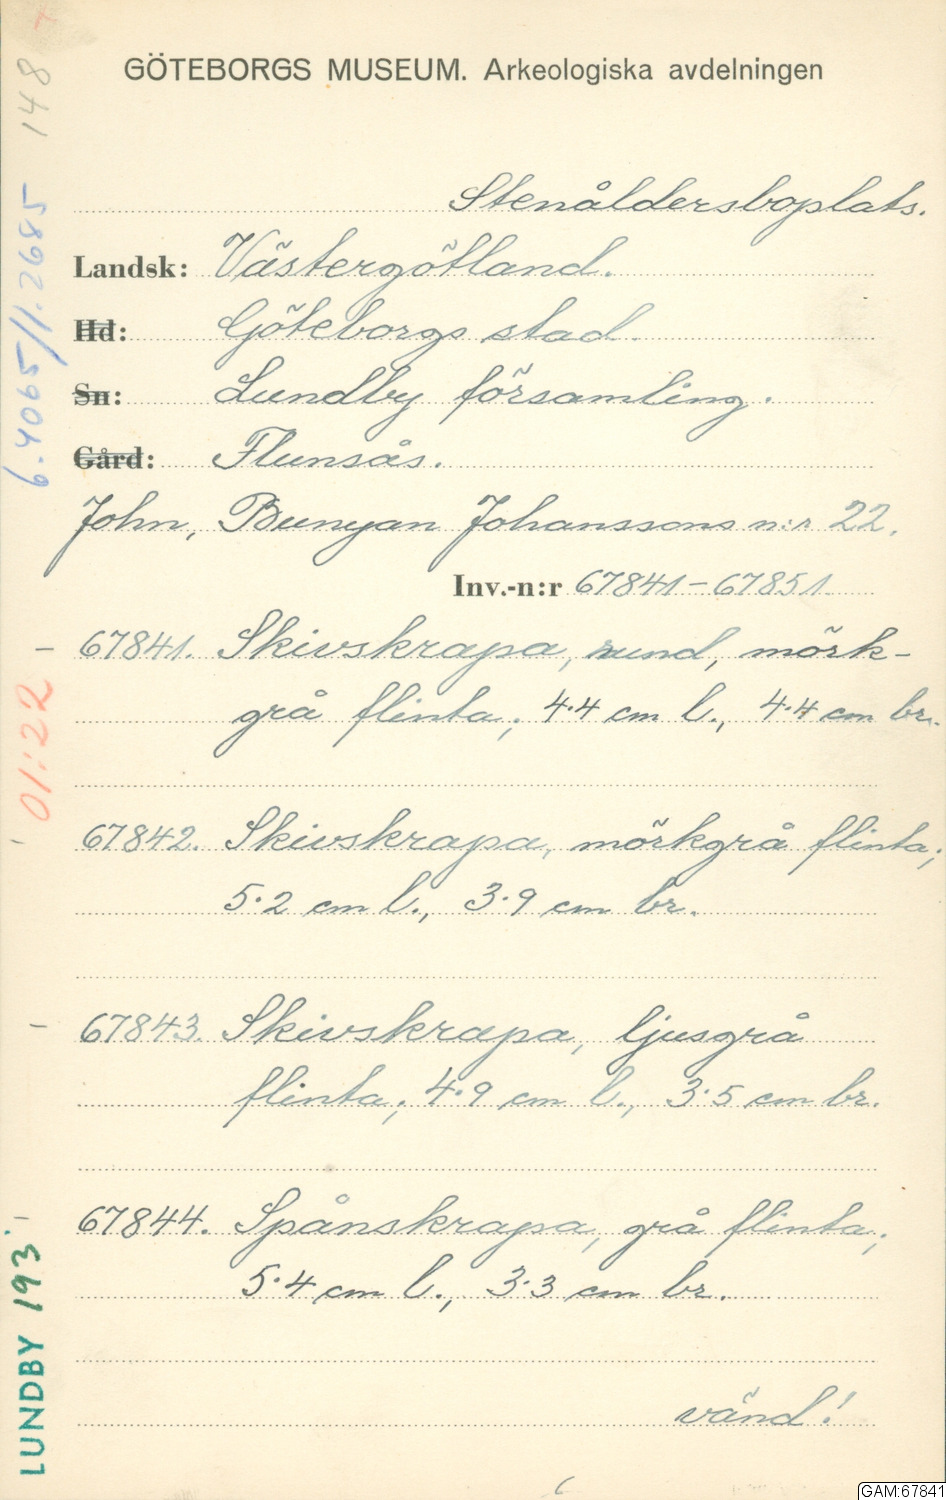 GÖTEBORGS MUSEUM. Arkeologiska avdelningen
Stenåldersboplats.
Landsk: Västergötland.
Hd: Göteborgs stad.
Sn: Lundby församling.
Gård: Flunsås.
John, Bunyan Johanssons n:r 22.
Inv.-n:r 67841-67851
67841. Skivskrapa, rund, mörk-
grå flinta; 4.4 cm l., 4.4 cm br.
67842. Skivskrapa, mörkgrå flinta;
5.2 cm l., 3.9 cm br.
67843. Skivskrapa, ljusgrå
flinta; 4.9 cm l., 3.5 cm br.
67844. Spånskrapa, grå flinta;
5.4 cm l., 3.3 cm br.
vänd!
LUNDBY 193
01:22
6.4065/1.2685
148
GAM:67841